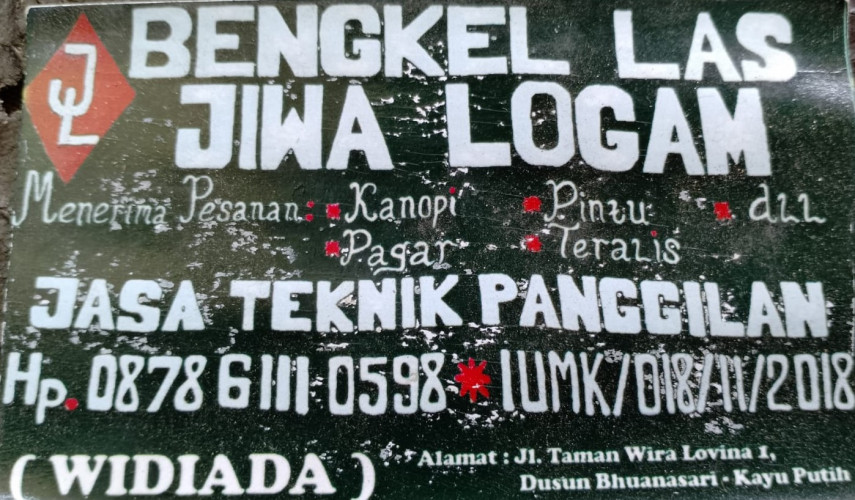 JL
BENGKEL LAS
JIWA LOGAM
Menerima Pesanan: Kanopi Pintu dll
Pagar Teralis
JASA TEKNIK PANGGILAN
Hp. 0878 6111 0598 * IUMK/018/11/2018
(WIDIADA) Alamat : Jl. Taman Wira Lovina 1,
Dusun Bhuanasari - Kayu Putih